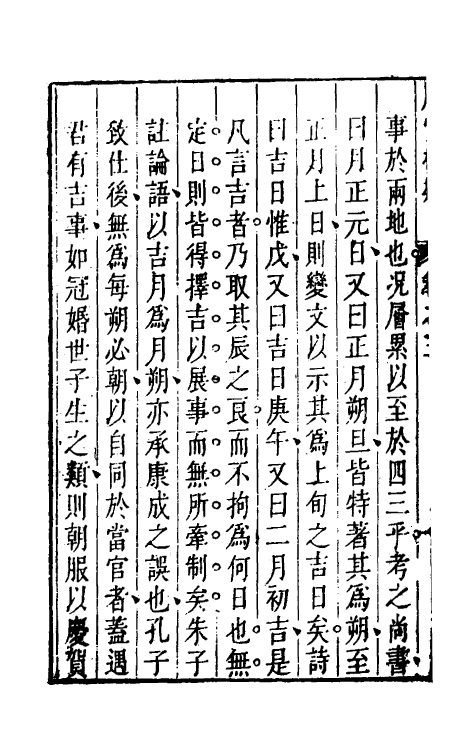 事於兩地也况層累以至於四三乎考之尚書
曰月正元日又曰正月朔旦皆特著其為朔至
正月上日則變文以示其為上旬之吉日矣詩
曰吉日惟戊又曰吉日庚午又曰二月初吉是
凡言吉者乃取其辰之良而不拘為何日也無
定日則皆得擇吉以展事而無所牽制矣朱子
註論語以吉月為月朔亦承康成之誤也孔子
致仕後無為每朔必朝以自同於當官者蓋遇
君有吉事如冠婚世子生之類則朝服以慶賀